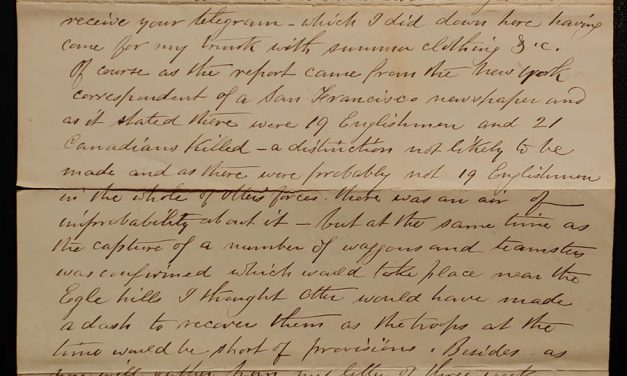 receive your telegram – which I did down here having
come for my trunk with summer clothing &c.
Of course as the report came from the New York
correspondent of a San Francisco newspaper and
as it stated there were 19 Englishmen and 21
Canadians killed – a distinction not likely to be
made and as there were probably not 19 Englishmen
in the whole of Otters forces. there was an air of
improbability about it – but at the same time as
the capture of a number of waggons and teamsters
was confirmed which would take place near the
Egle hills I thought Otter would have made
a dash to recover them as the troops at the
time would be short of provisions. Besides as
you will gather from my letter of three